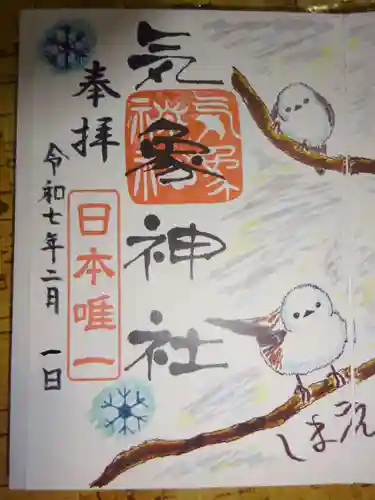 気象神社
気象
神社
奉拝
日本唯一
令和七年二月 一日
しまえ